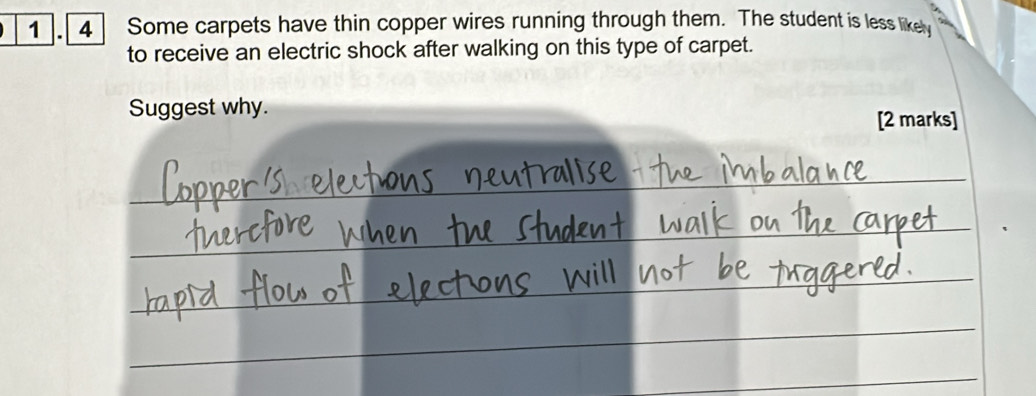 1 . 4 Some carpets have thin copper wires running through them. The student is less likely
to receive an electric shock after walking on this type of carpet.
Suggest why.
[2 marks]
Copper's elections neutralise the imbalance
therefore when the student walk on the carpet
rapid flow of elections will not be triggered.